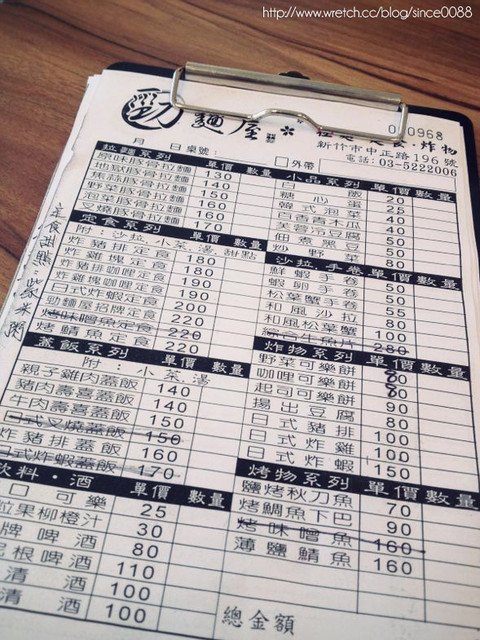 http://www.wretch.cc/blog/since0088
勁 麵屋 * 炸物
000968
新竹市中正路196號
電話:03-5222006
月 日 桌號: □外帶
拉麵系列 單價 數量
原味豚骨拉麵 130
地獄豚骨拉麵 140
蕉蒜豚骨拉麵 150
野菜豚骨拉麵 150
泡菜豚骨拉麵 160
叉燒豚骨拉麵 170
定食系列 單價 數量
附:沙拉、小菜、湯、甜點
定食甜點:紫米粥
炸豬排定食 180
炸雞塊定食 180
炸豬排咖哩定食 190
炸雞塊咖哩定食 190
日式炸蝦定食 200
勁麵屋招牌定食 200
烤味噌魚定食 220
烤鯖魚定食 220
蓋飯系列 單價 數量
附:小菜、湯
親子雞肉蓋飯 140
豬肉壽喜蓋飯 140
牛肉壽喜蓋飯 150
日式叉燒蓋飯 150
炸豬排蓋飯 160
日式炸蝦蓋飯 170
飲料·酒 單價 數量
可樂 25
粒果柳橙汁 30
牌啤酒 80
根啤酒 110
清酒 100
清酒 100
小品系列 單價 數量
白飯 20
糖心蛋 25
韓式泡菜 40
百香青木瓜 40
芙蓉冷豆腐 40
佃煮黑豆 50
炒野菜 80
沙拉、手卷 單價 數量
鮮蝦手卷 50
蝦卵手卷 50
松葉蟹手卷 50
和風沙拉 80
和風松葉蟹 100
牛魚片 280
炸物系列 單價 數量
野菜可樂餅 80
咖哩可樂餅 80
起司可樂餅 90
揚出豆腐 80
日式豬排 100
日式炸雞 100
日式炸蝦 150
烤物系列 單價 數量
鹽烤秋刀魚 70
烤鯛魚下巴 90
烤味噌魚 160
薄鹽鯖魚 160
總金額